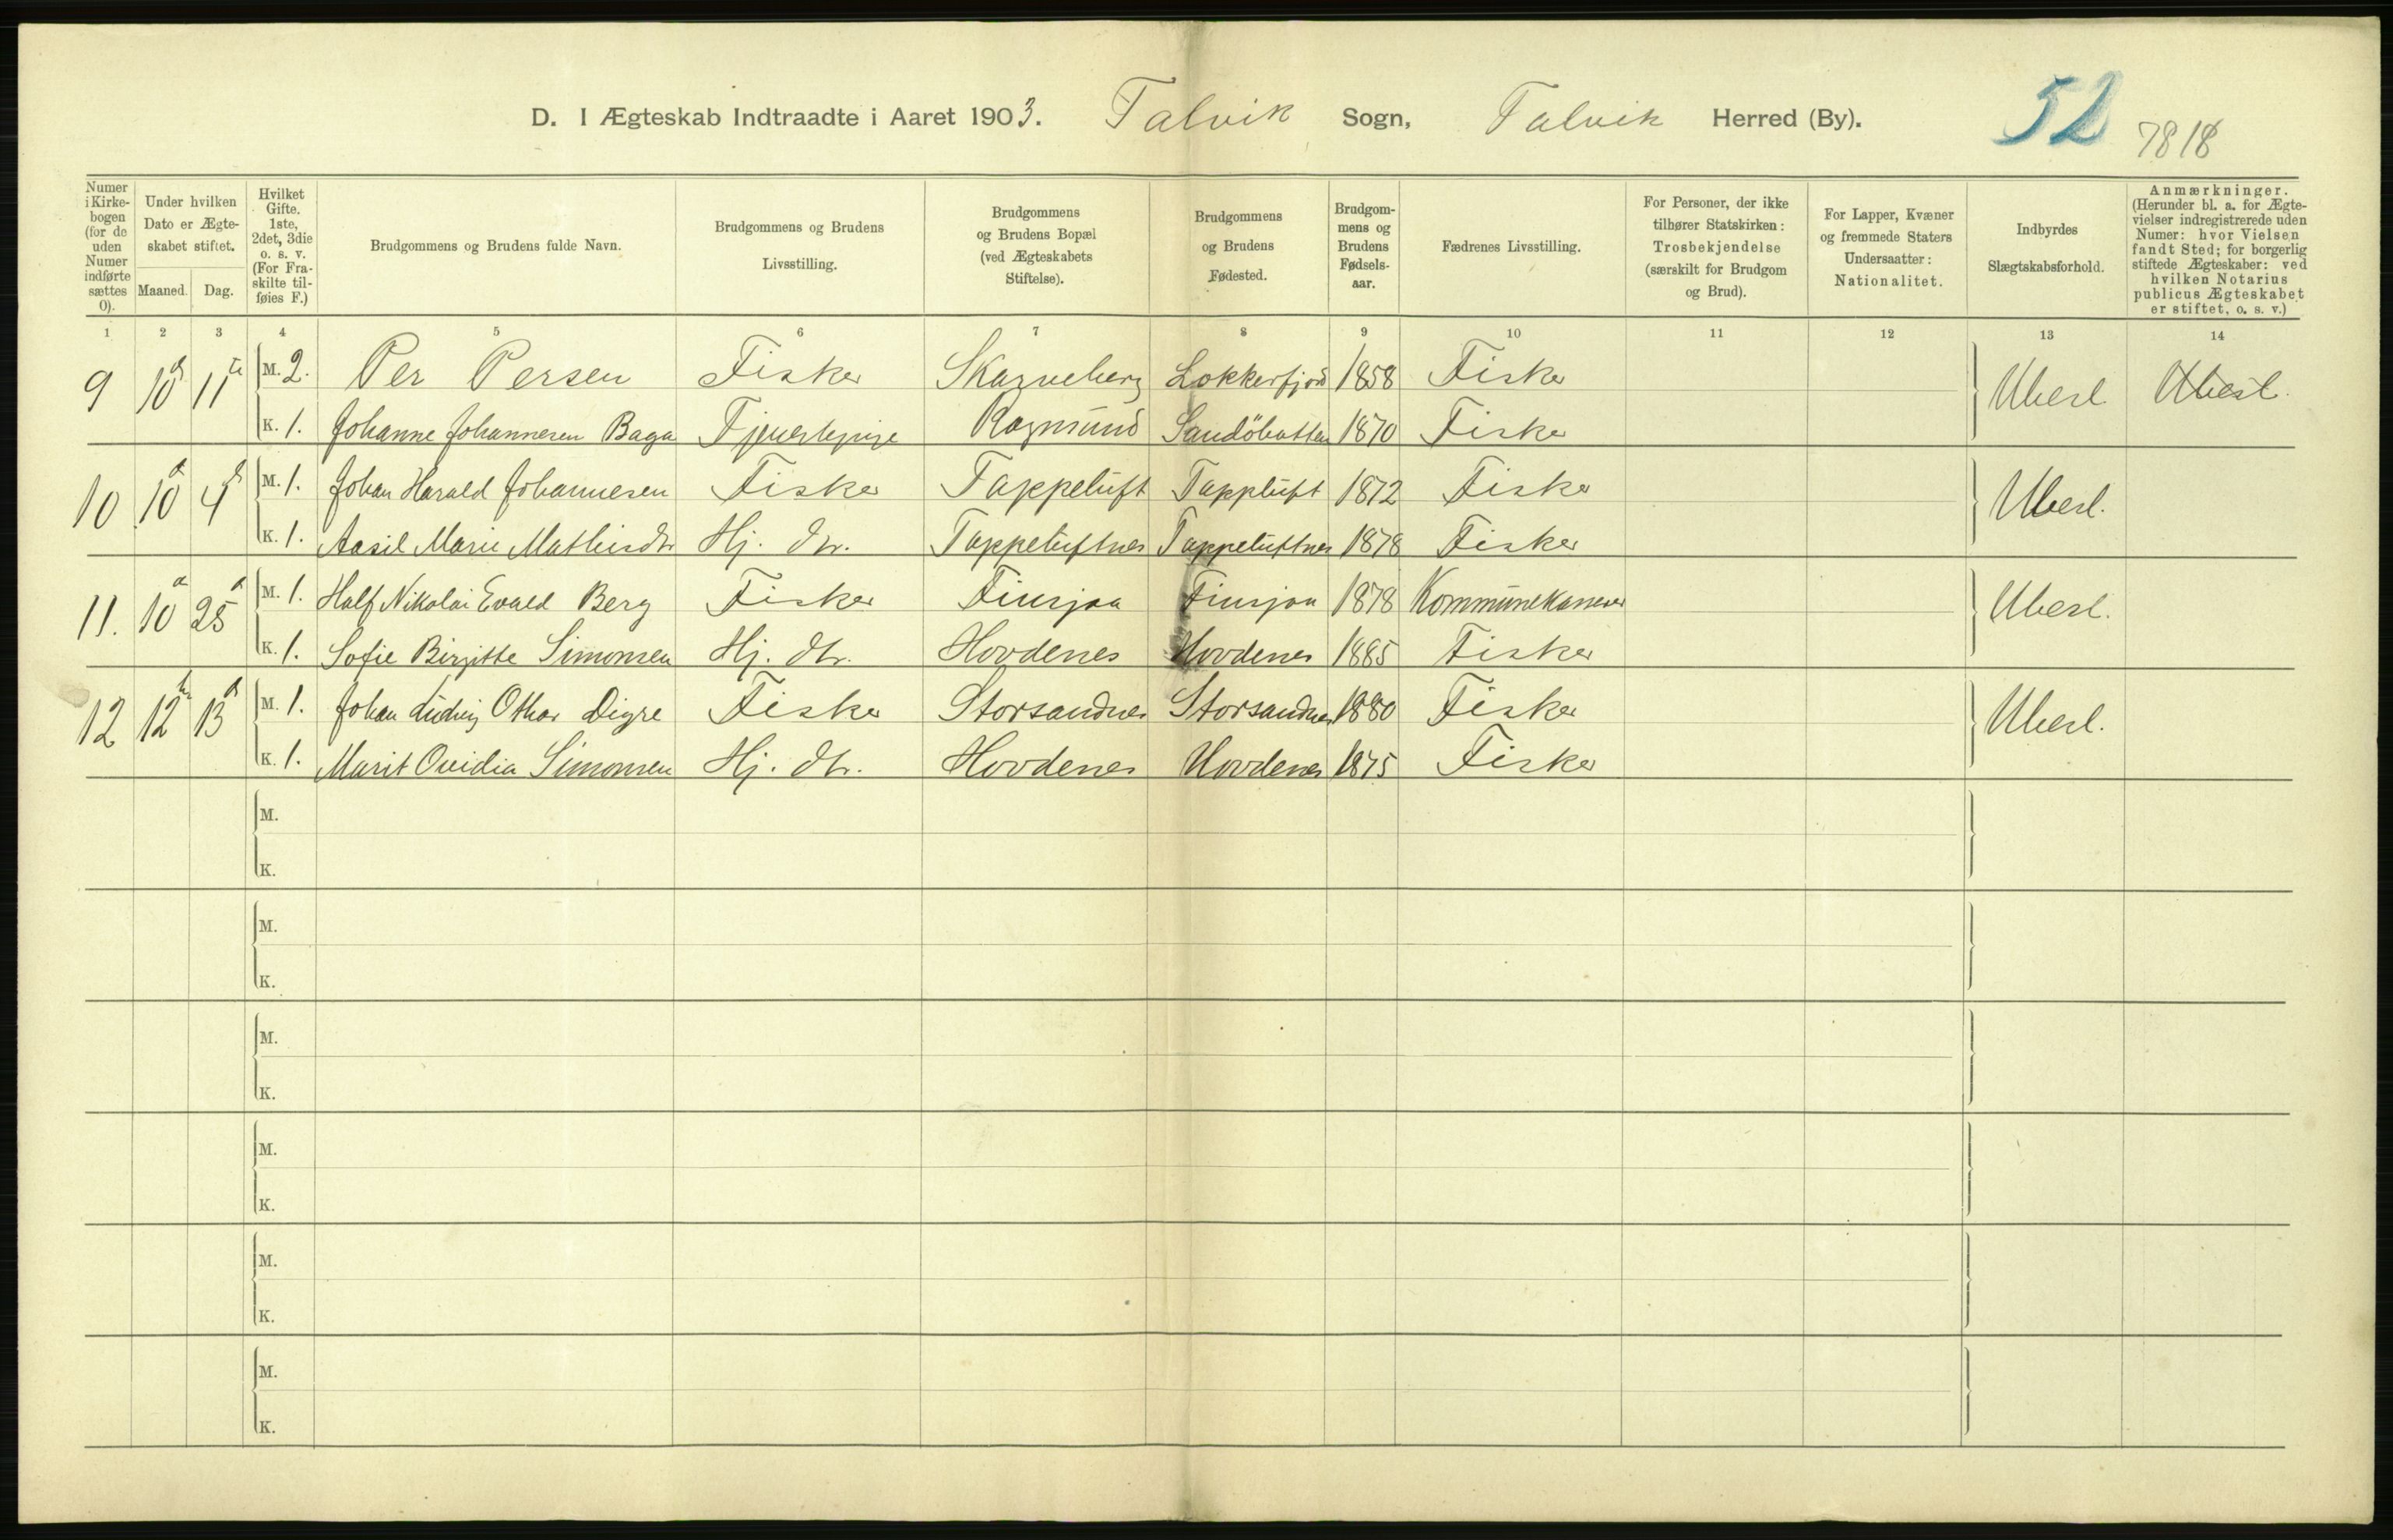 D. I Ægteskab Indtraadte i Aaret 1903. Talvik Sogn, Talvik Herred (By).
52
7818
Numer i Kirkebogen (for de uden Numer indførte sættes 0).
Under hvilken Dato er Ægteskabet stiftet.
Maaned. Dag.
Hvilket Gifte. 1ste, 2det, 3die o. s. v. (For Fraskilte tilføies F.)
Brudgommens og Brudens fulde Navn.
Brudgommens og Brudens Livsstilling.
Brudgommens og Brudens Bopæl (ved Ægteskabets Stiftelse).
Brudgommens og Brudens Fødested.
Brudgommens og Brudens Fødselsaar.
Fædrenes Livsstilling.
For Personer, der ikke tilhører Statskirken: Trosbekjendelse (særskilt for Brudgom og Brud).
For Lapper, Kvæner og fremmede Staters Undersaatter: Nationalitet.
Indbyrdes Slægtskabsforhold.
Anmærkninger. (Herunder bl. a. for Ægtevielser indregistrerede uden Numer: hvor Vielsen fandt Sted; for borgerlig stiftede Ægteskaber: ved hvilken Notarius publicus Ægteskabet er stiftet, o. s. v.)
1 2 3 4 5 6 7 8 9 10 11 12 13 14
9 10 11 M. 2. Per Persen Fisker Skarneberg Lokkerfjord 1858 Fisker Ubesl Ubesl.
K. 1. Johanne Johannesen Baga Tjenestepige Rognsund Sandöbotten 1870 Fisker
10 10 4 M. 1. Johan Harald Johannesen Fisker Tappeluft Tappluft 1872 Fisker Ubesl.
K. 1. Aasil Marie Mathisdtr Hj. dtr. Tappeluftnes Tappeluftnes 1878 Fisker
11. 10 25 M. 1. Half Nikolai Evald Berg Fisker Finsjaa Finsjaa 1878 Kommunekasserer Ubesl.
K. 1. Sofie Birgitte Simonsen Hj. dtr. Hovdenes Hovdenes 1885 Fisker
12 12 13 M. 1. Johan Ludvig Othar Digre Fisker Storsandnes Storsandnes 1880 Fisker Ubesl.
K. 1. Marit Ovidia Simonsen Hj. dtr. Hovdenes Hovdenes 1875 Fisker
M.
K.
M.
K.
M.
K.
M.
K.
M.
K.
M.
K.